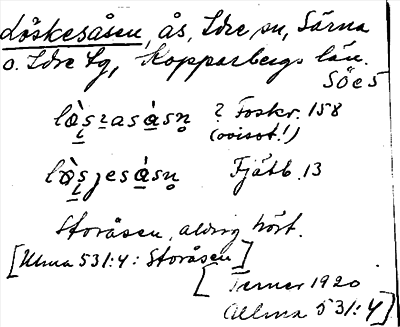 Löskesåsen, ås, Idre sn, Särna
o. Idre tg, Kopparbergs län.
SÖe5
lò̖sɿasásn̥ ? Foskr. 158
(ovisst!)
lò̖sȷesásn̥ Fjätb. 13
Storåsen, aldrig hört.
[Ulma 531:4: Storåsen]
[Terner 1920
Allma 531:4]